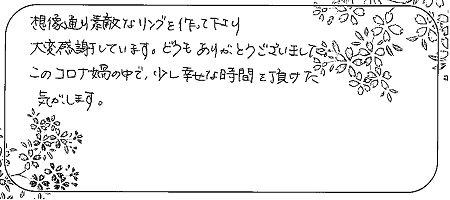 想像通り素敵なリングを作って下さり
大変感謝しています。どうもありがとうございました
このコロナ禍の中で、少し幸せな時間を頂けた
気がします。